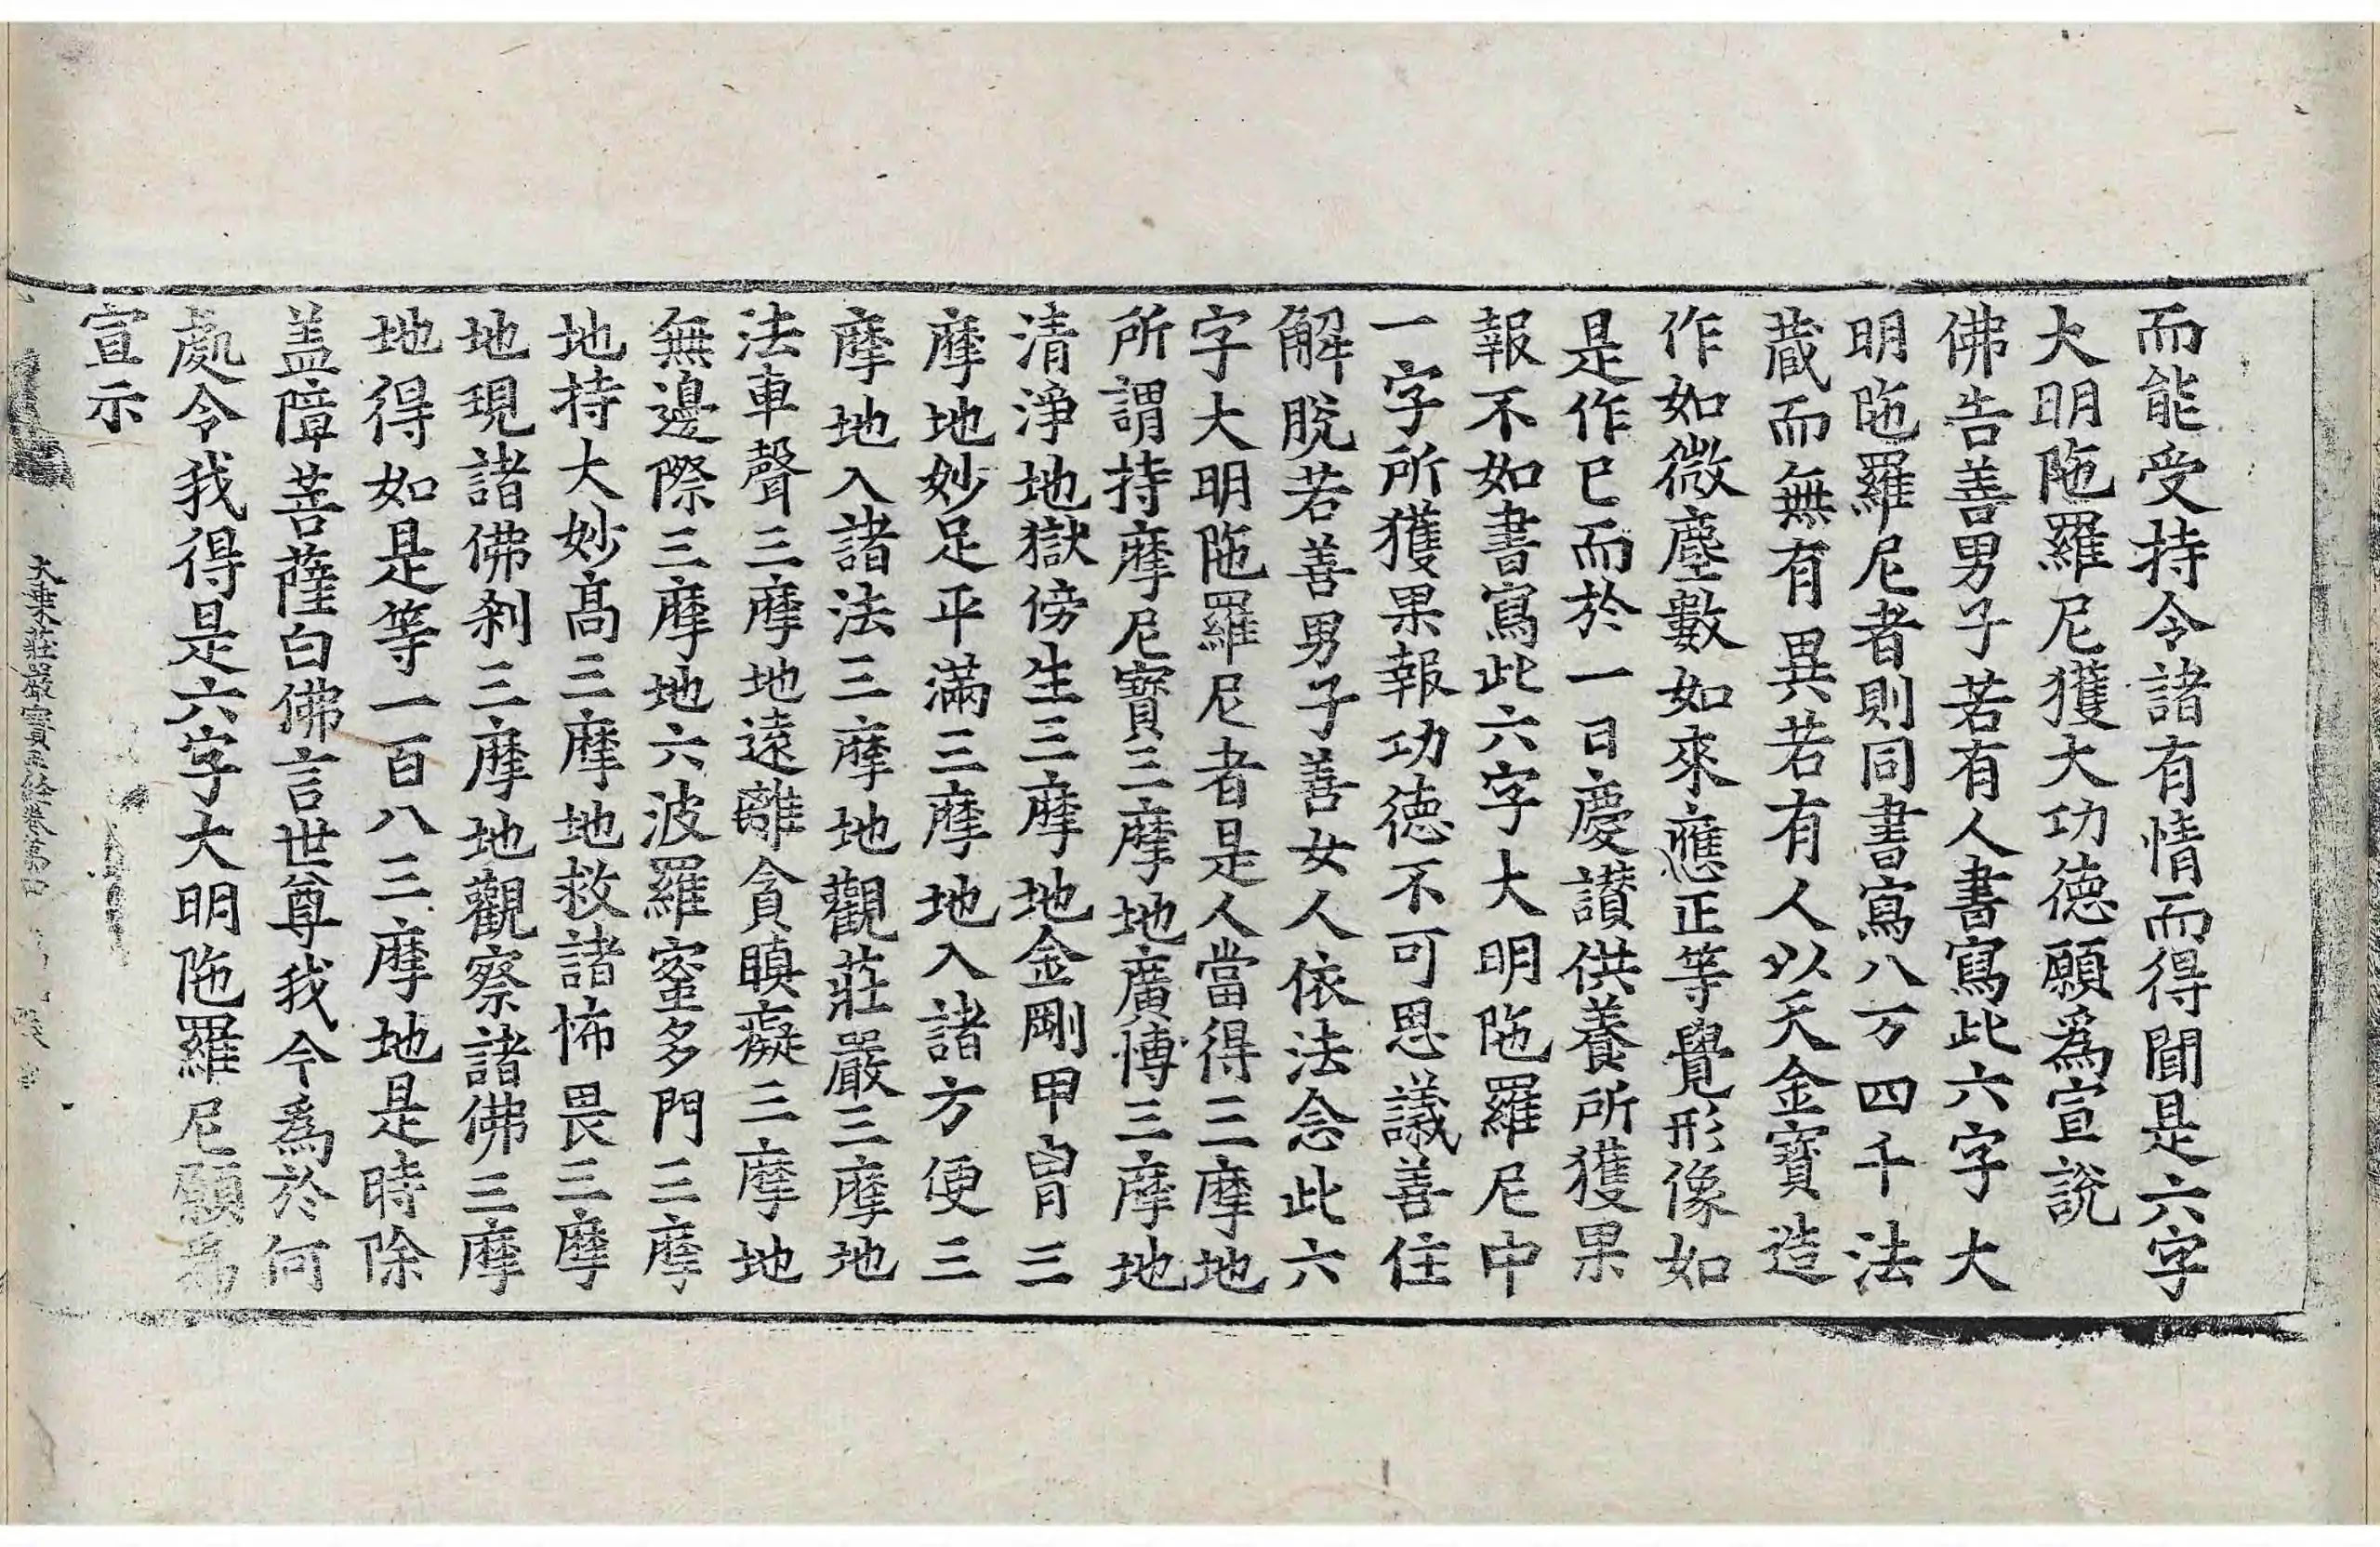 而能受持令諸有情而得聞是六字
大明陁羅尼獲大功德願爲宣說
佛告善男子若有人書寫此六字大
明陁羅尼者則同書寫八万四千法
藏而無有異若有人以天金寶造
作如微塵數如來應正等覺形像如
是作已而於一日慶讃供養所獲果
報不如書寫此六字大明陁羅尼中
一字所獲果報功德不可思議善住
解脫若善男子善女人依法念此六
字大明陁羅尼者是人當得三摩地
所謂持摩尼寶三摩地廣博三摩地
清淨地獄傍生三摩地金剛甲冑三
摩地妙足平滿三摩地入諸方便三
摩地入諸法三摩地觀莊嚴三摩地
法車聲三摩地遠離貪瞋癡三摩地
無邊際三摩地六波羅蜜多門三摩
地持大妙高三摩地救諸怖畏三摩
地現諸佛刹三摩地觀察諸佛三摩
地得如是等一百八三摩地是時除
盖障菩薩白佛言世尊我今爲於何
處令我得是六字大明陁羅尼願爲
宣示
大乗莊嚴寶王經卷苐四